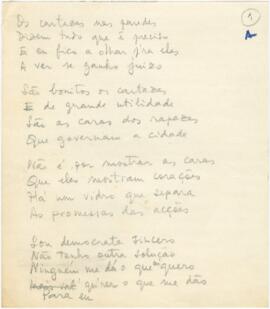 1
A
Os cartazes nas paredes
Dizem tudo que é preciso
E eu fico a olhar p'ra eles
A ver se ganho juízo
São bonitos os cartazes
E de grande utilidade
São as caras dos rapazes
Que governam a cidade
Não é por mostrar as caras
Que eles mostram corações
Há um vidro que separa
As promessas das acções
Sou democrata sincero
Não tenho outra solução
Ninguém me dá o que eu quero
quirer o que me dão
Para eu